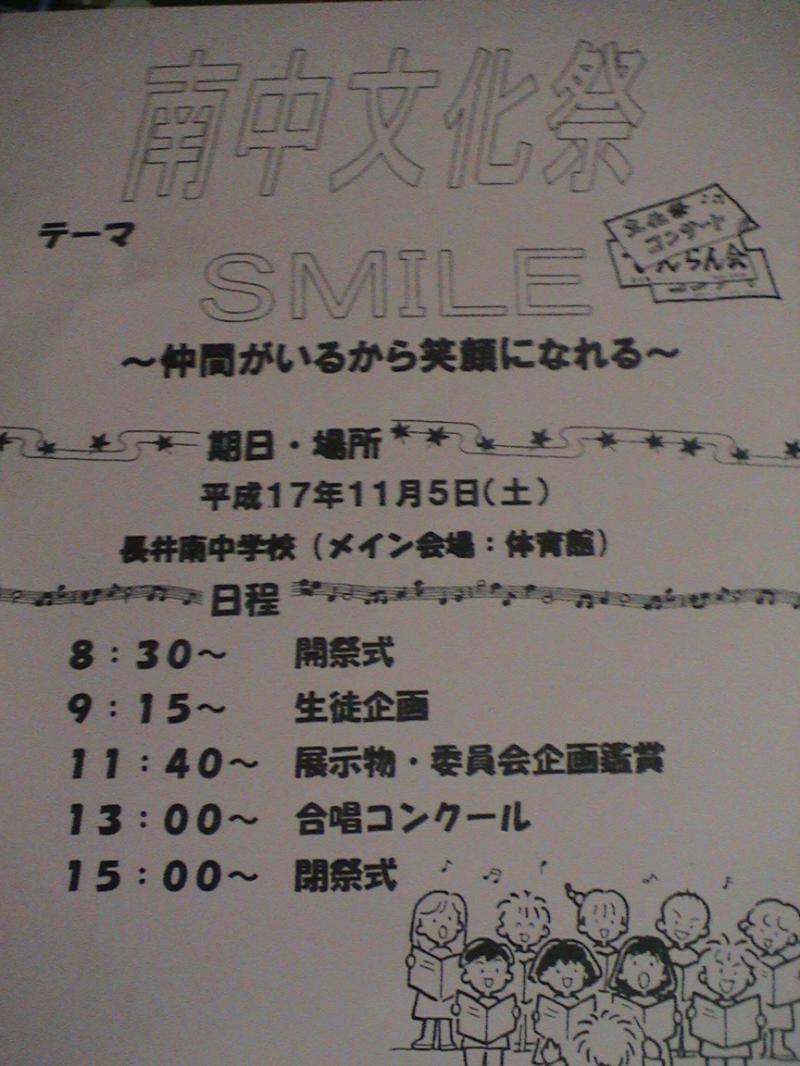 南中文化祭
テーマ
SMILE
～仲間がいるから笑顔になれる～
文化祭
コンサート
てんらん会
期日・場所
平成17年11月5日(土)
長井南中学校(メイン会場:体育館)
日程
8:30～ 開祭式
9:15～ 生徒企画
11:40～ 展示物・委員会企画鑑賞
13:00～ 合唱コンクール
15:00～ 閉祭式